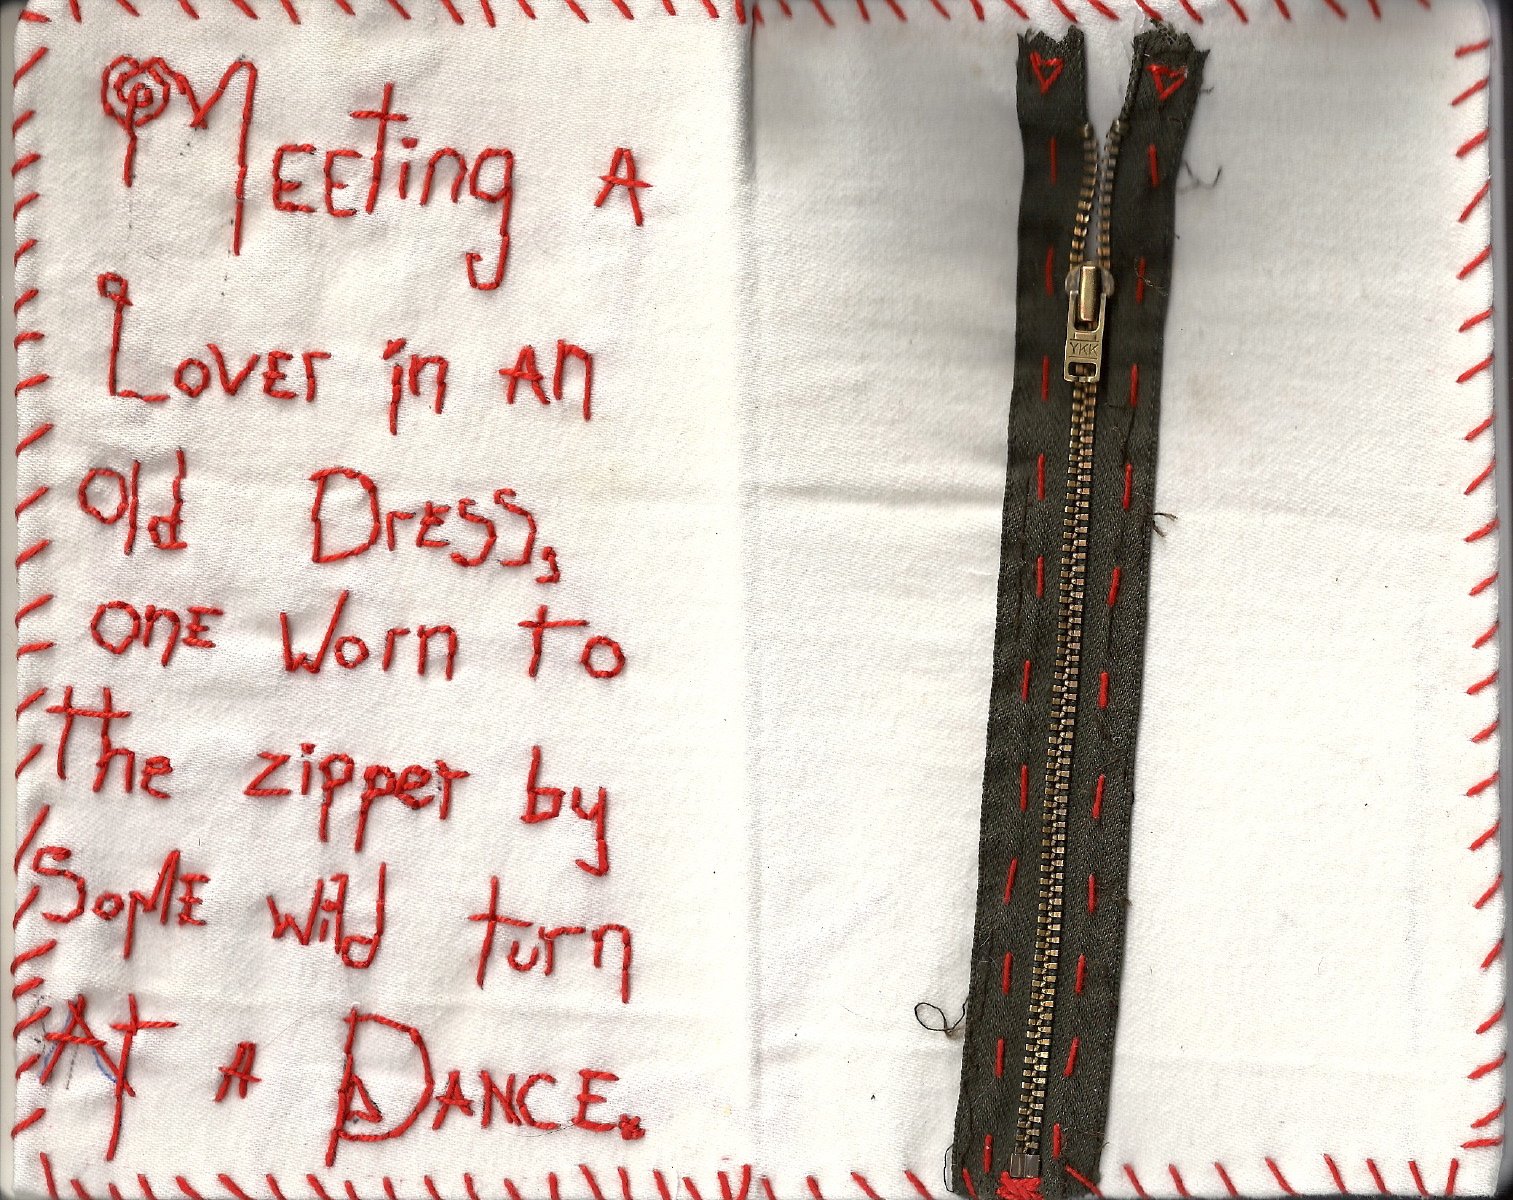 Meeting A
Lover in an
Old Dress,
one Worn to
the zipper by
Some wild turn
At a Dance.
YKK